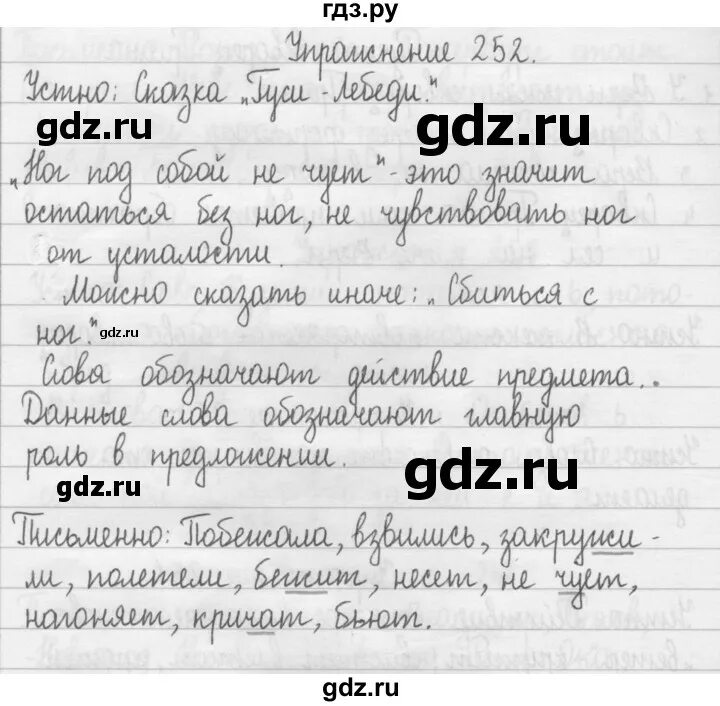 гдз.ру
Упражнение 252.
Устно: Сказка „Гуси-Лебеди."
gdz.ru
gdz.ru
„Ног под собой не чует" - это значит
остаться без ног, не чувствовать ног
от усталости.
Можно сказать иначе: „Сбиться с
ног."
gdz.ru
Слова обозначают действие предмета..
Данные слова обозначают главную
роль в предложении.
gdz.ru
gdz.ru
Письменно: Побежала, взвились, закружи-
ли, полетели, бежит, несет, не чует,
нагоняет, кричат, бьют.
gdz.ru
gdz.ru